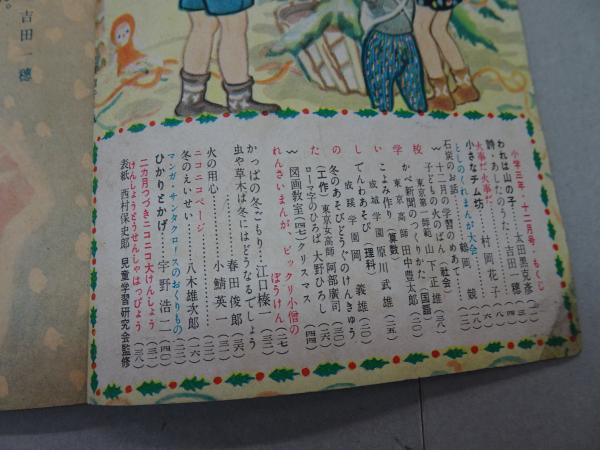 小学三年・十二月号・もくじ
われは山の子……太田黒克彦(二)
詩・あしたのうた……吉田一穂(一)
大事だ大事だ
小さなチム坊……村岡花子(六)
としのくれまんが大会(一八)
石炭のお話……鶴岡競(二二)
十二月の学習のめあて
子どもと火のばん(社会)
東京第一師範 山下正雄(二八)
かべ新聞のつくりかた(国語)
東京高師 田中豊太郎(二〇)
こよみ作り(算数)
成城学園 原川武雄(二五)
でんわあそび(理科)
成蹊学園 岡義雄(二三)
冬のあそびどうぐのけんきゅう
(工作)東京女高師 阿部廣司(三〇)
ローマ字のひろば 大野ひろし(二六)
図画教室(四七)クリスマス(四四)
たのしい学校
れんさいまんが、ビックリ小僧の
ぼうけん(二七)
かっぱの冬ごもり……江口榛一(三二)
虫や草木は冬にはどうなるでしょう
春田俊郎(三六)
火の用心……小鯖英一(三)
ニコニコページ
冬のえいせい……八木雄次郎(三)
マンガ・サンタクロースのおくりもの
ひかりとかげ……宇野浩二(四〇)
二カ月つづきニコニコ大けんしょう(三一)
けんしょうとうせんしゃはっぴょう(三八)
表紙 西村保史郎 児童学習研究会監修
吉田一穂